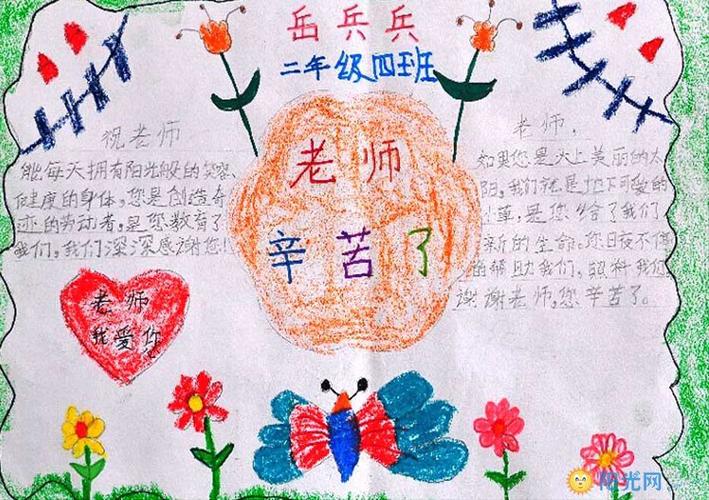 岳兵兵
二年级四班
老师
辛苦了
祝老师
能每天拥有阳光般的笑容、
健康的身体，您是创造奇
迹的劳动者，是您教育了
我们，我们深深感谢您！
老师
我爱你
老师，
如果您是天上美丽的太
阳，我们就是地下可爱的
小草，是您给了我们
新的生命。您日夜不停
的帮助我们，照料我们
谢谢老师，您辛苦了。
阳光网